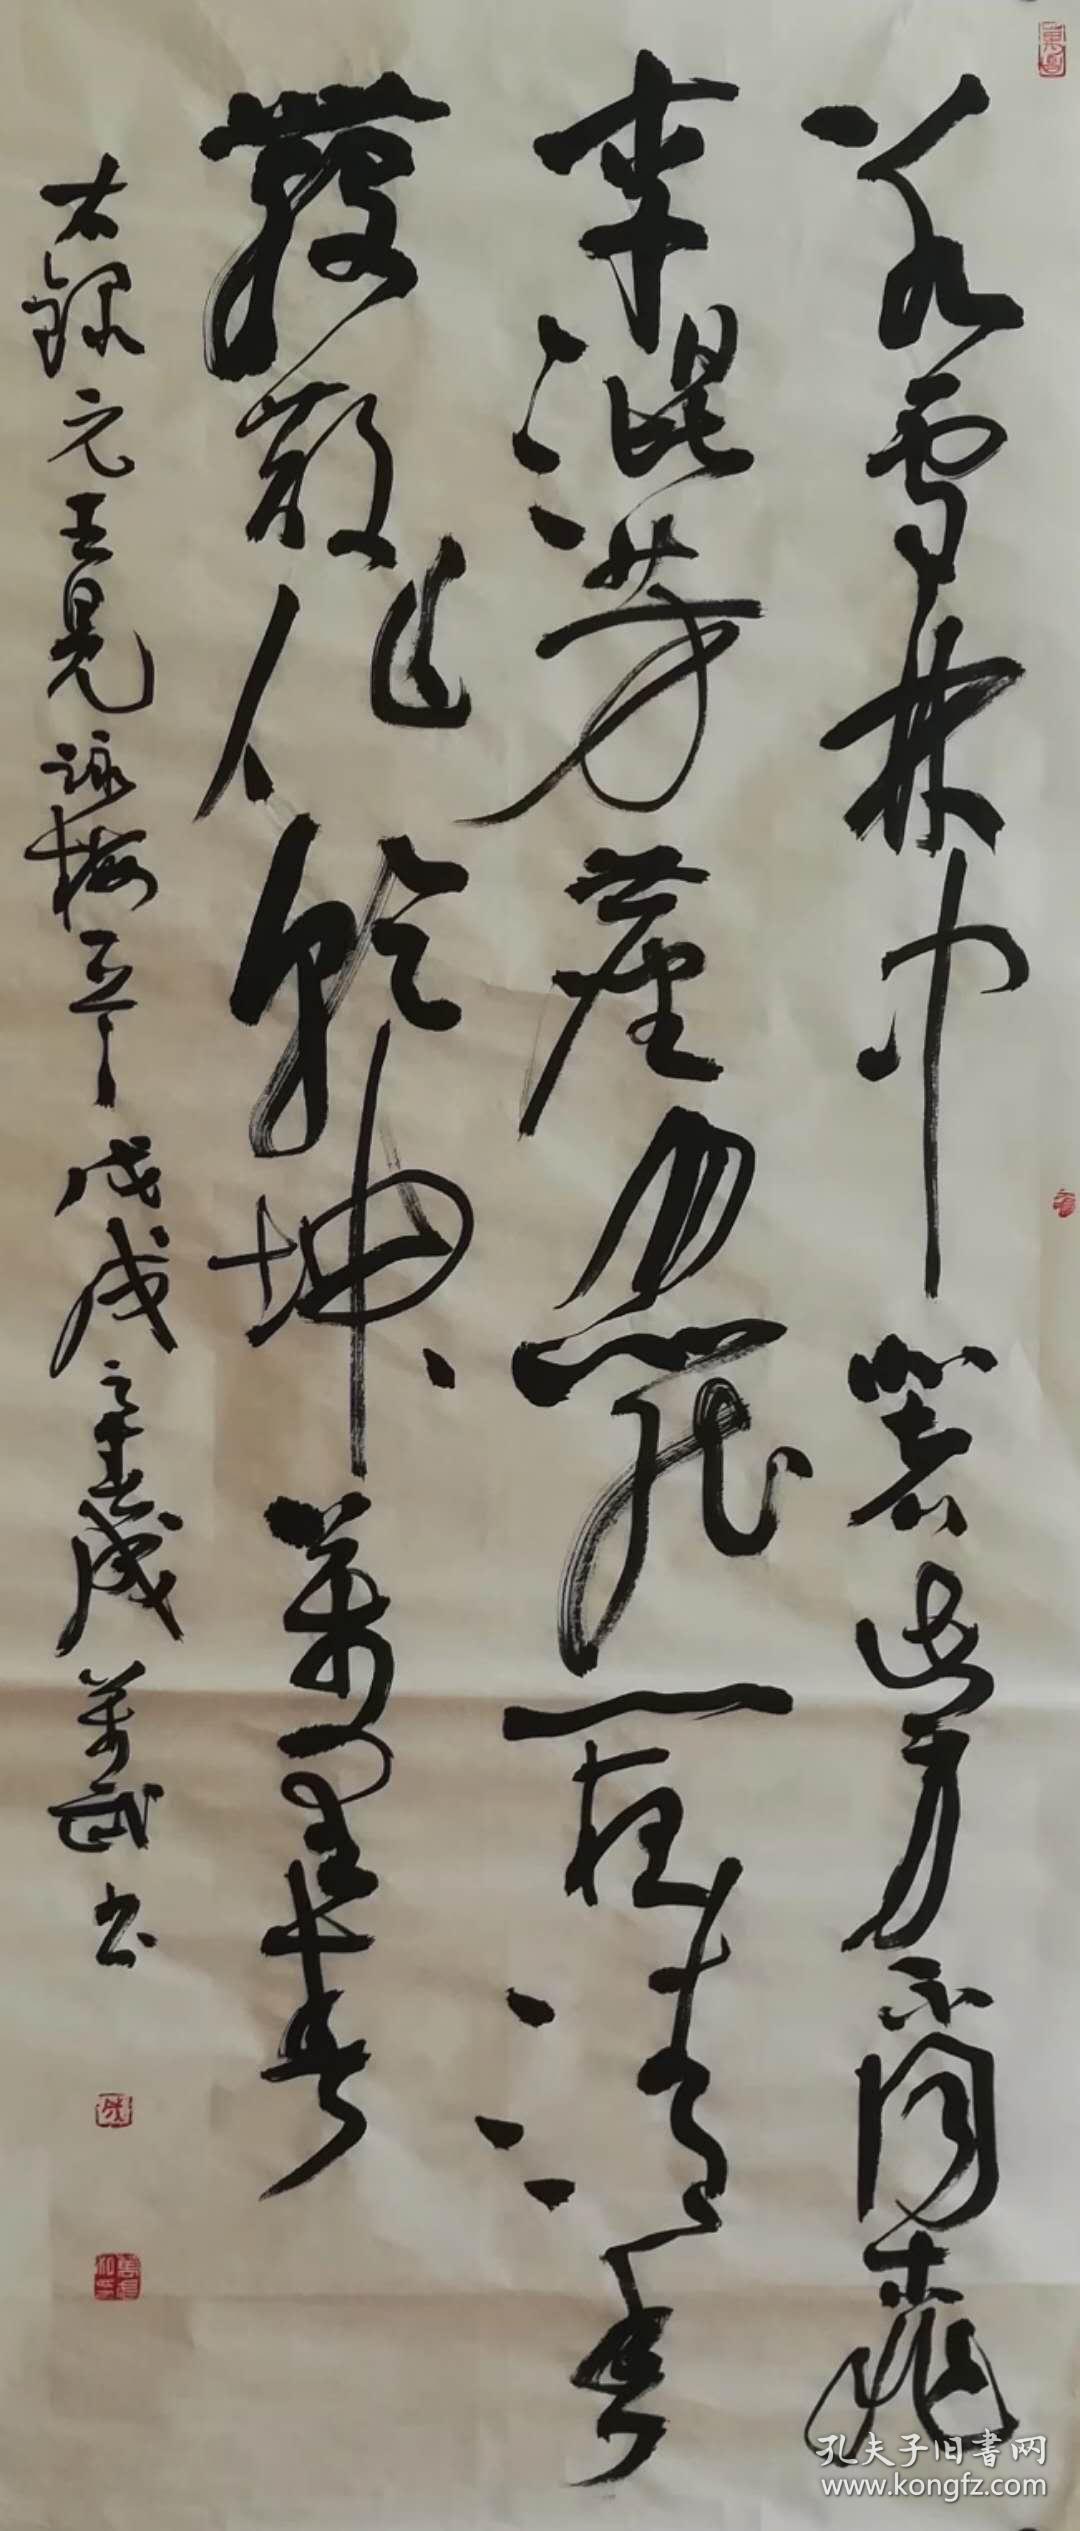 冰雪林中著此身不同桃
李混芳塵忽然一夜清香
發散作乾坤萬里春
右錄元王冕詠梅 戊戌之 歲萬武書
孔夫子旧书网
www.kongfz.com